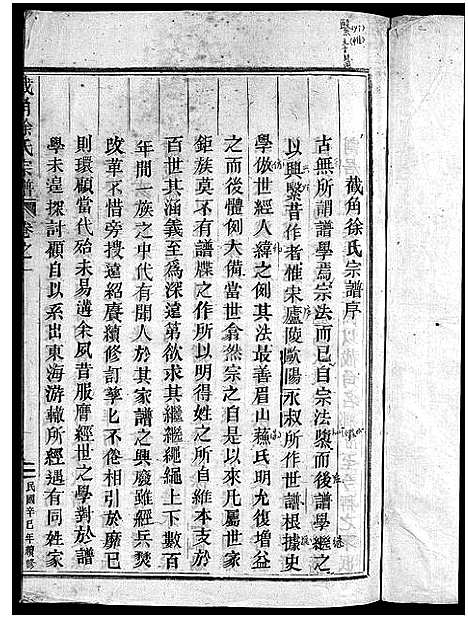 截角徐氏宗譜序
古無所謂譜學焉宗法而已自宗法隳而後譜學繼之
以興繫昔作者惟宋廬陵歐陽永叔所作世譜根據史
學倣世經人緯之例其法最善眉山蘓氏明允復增益
之而後體例大備當世翕然宗之自是以來凡屬世家
鉅族莫不有譜牒之作所以明得姓之所自維本支於
百世其涵義至爲深遠第欲求其繼繼繩繩上下數百
年間一族之中代有聞人於其家譜之興廢雖經兵燹
改革不惜旁搜遠紹賡續修訂孳匕不倦相引於靡已
則環顧當代殆未易遘余夙昔服膺經世之學對於譜
學未遑探討顧自以系出東海游轍所經遇有同姓家
截角徐氏宗譜
卷之一
民國辛巳年續修